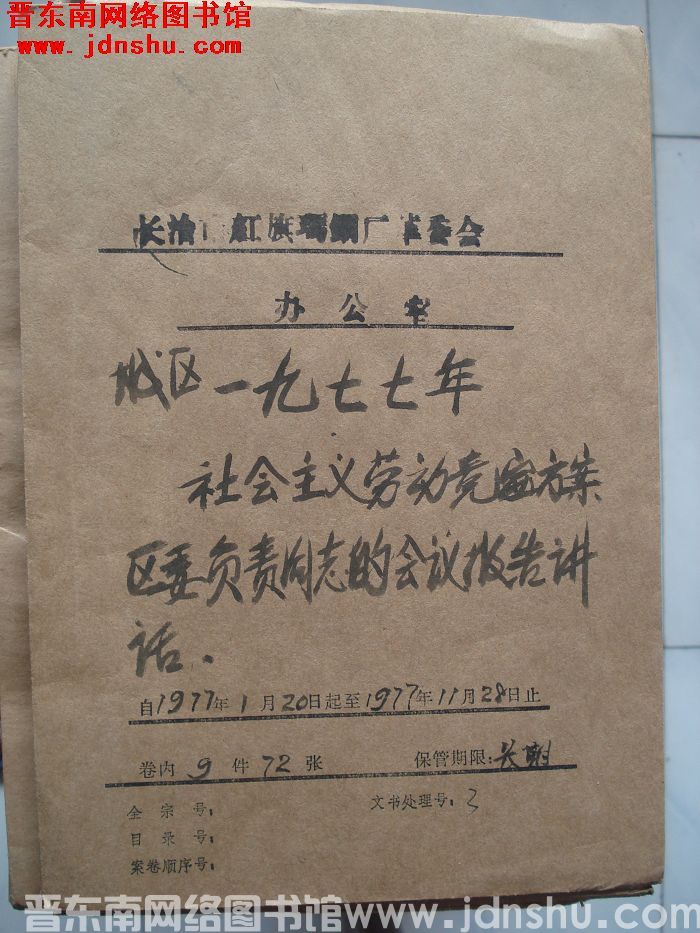 晋东南网络图书馆
www.jdnshu.com
长治市红旗玛钢厂革委会
办公室
城区一九七七年
社会主义劳动竞赛方案
区委负责同志的会议报告讲
话.
自1977年1月20日起至1977年11月28日止
卷内9件72张 保管期限:长期
全宗号: 文书处理号:3
目录号:
案卷顺序号:
晋东南网络图书馆 www.jdnshu.com